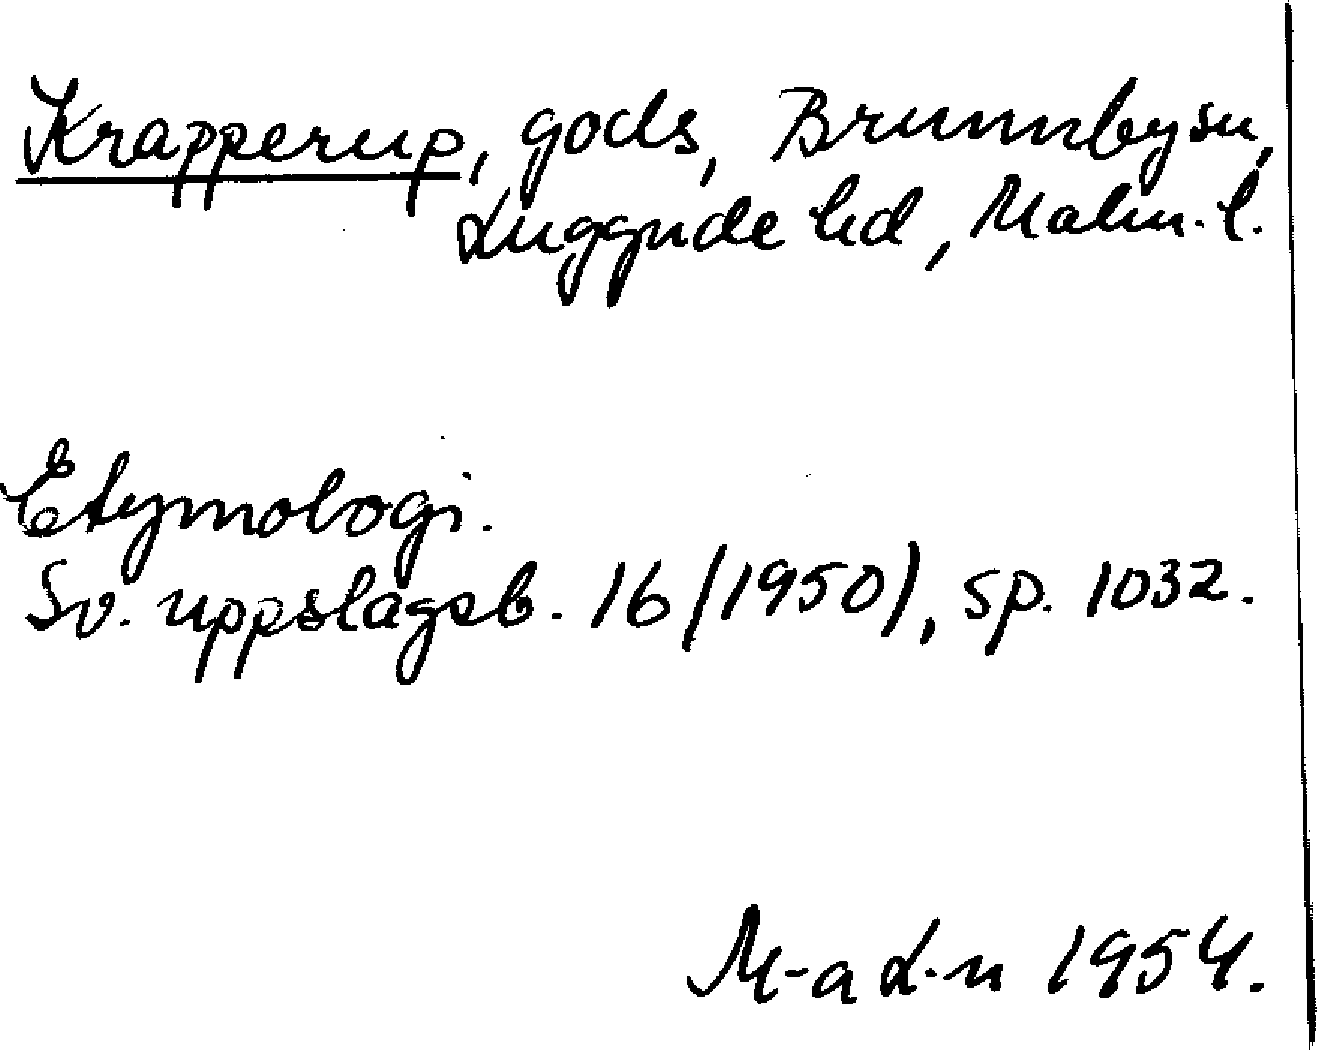 Krapperup, gods, Brunnby sn,
Luggude hd, Malm. l.
Etymologi.
Sv. uppslagsb. 16 (1950), sp. 1032.
M-a L-n 1954.